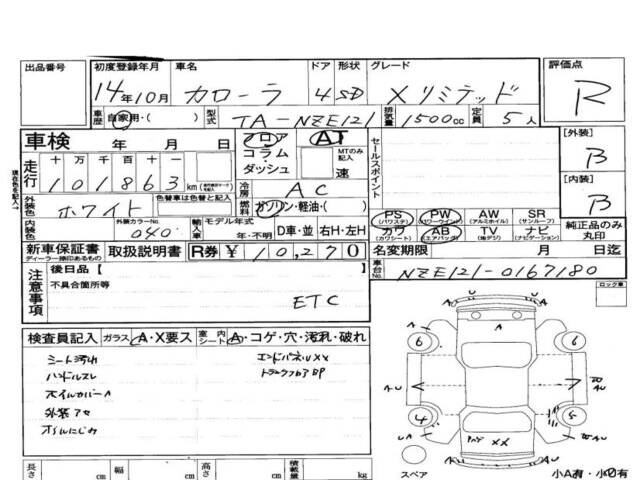 出品番号 初度登録年月 車名 ドア 形状 グレード 評価点
14年10月 カローラ 4 SD Xリミテッド R
車歴 自家用・( ) 型式 TA-NZE121 排気量 1500cc 定員 5人
車検 年 月 日 フロア コラム・ダッシュ AT MTのみ記入 速 セールスポイント
【外装】 B
走行 十万千百十一 101863 km
【内装】 B
冷房 AC
外装色 ホワイト 色替車は色替と記入 燃料 ガソリン・軽油・( )
内装色 外装カラーNo. 040 輸入車 モデル年式 年・不明 D車・並 右H・左H
PS (パワステ) PW (パワーウインド) AW (アルミホイル) SR (サンルーフ)
カワ (カワシート) AB (エアバッグ) TV (地デジ) ナビ (ナビゲーション) 純正品のみ丸印
新車保証書 ディーラー捺印あるもの 取扱説明書 R券 ¥10,270 名変期限 月 日迄
車台No. NZE121-0167180
注意事項 後日品【 】 ロック車
不具合箇所等
ETC
検査員記入 ガラス A・X要ス 室内シート A・コゲ・穴・汚れ・破れ
シート汚れ エンドパネルUXX
ハンドルスレ
ホイルカバーA
外装アセ
長さ cm 幅 cm 高さ cm 積載量 kg
A
6 6
A U
4 5
XX
スペア 小A有・小U有